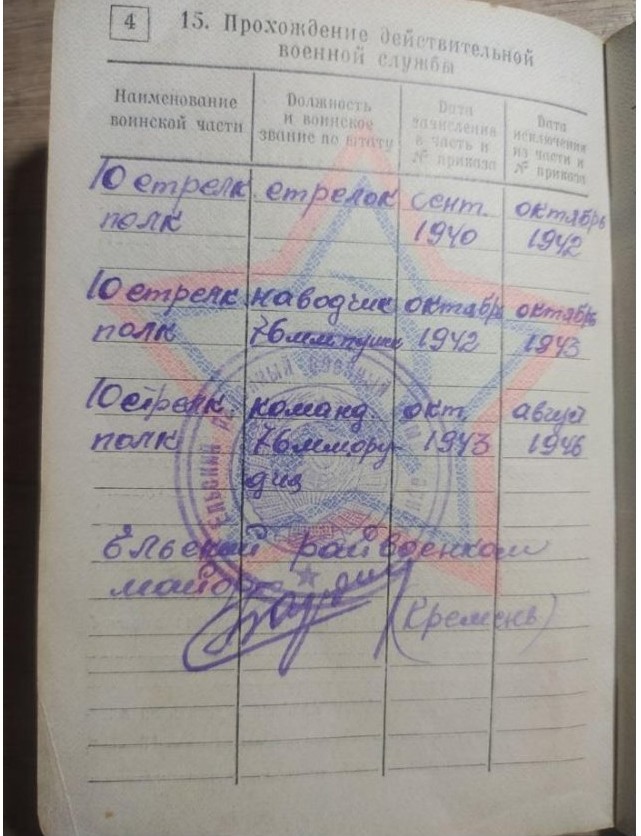 4
15. Прохождение действительной
военной службы
Наименование
воинской части
Должность
и воинское
звание по штату
Дата
зачисления
в часть и
№ приказа
Дата
исключения
из части и
№ приказа
10 стрелк стрелок сент. октябрь
полк 1940 1942
10 стрелк наводчик октябрь октябрь
полк 76мм пушк 1942 1943
10 стрелк команд. окт. август
полк 76мм ору- 1943 1946
дия
Ельский райвоенком
майор
(Кремень)